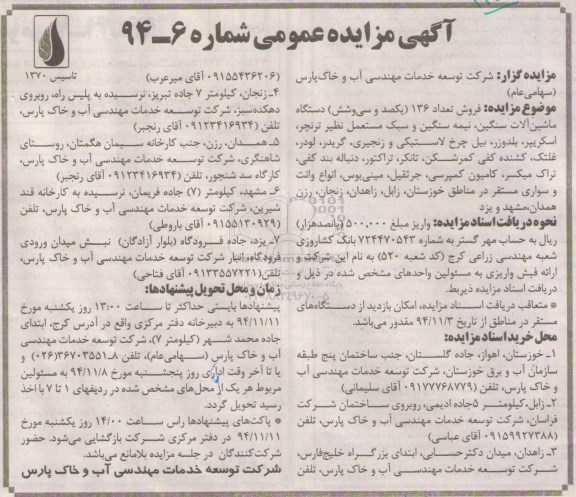 آگهی مزایده عمومی شماره ۶-۹۴
تاسیس ۱۳۷۰
مزایده گزار: شرکت توسعه خدمات مهندسی آب و خاک پارس
(سهامی عام)
موضوع مزایده: فروش تعداد ۱۳۶ (یکصد و سی‌وشش) دستگاه
ماشین‌آلات سنگین، نیمه سنگین و سبک مستعمل نظیر ترنچر،
اسکریپر، بلدوزر، بیل چرخ لاستیکی و زنجیری، گریدر، لودر،
غلتک، کشنده کفی کمرشکن، تانکر، تراکتور، دنباله بند کفی،
تراک میکسر، کامیون کمپرسی، جرثقیل، مینی‌بوس، انواع وانت
و سواری مستقر در مناطق خوزستان، زابل، زاهدان، زنجان، رزن
همدان،مشهد و یزد
نحوه دریافت اسناد مزایده: واریز مبلغ ۵۰۰,۰۰۰ (پانصدهزار)
ریال به حساب مهر گستر به شماره ۷۲۴۴۷۰۵۴۳ بانک کشاروزی
شعبه مهندسی زراعی کرج (کد شعبه ۵۲۰) به نام این شرکت و
ارائه فیش واریزی به مسئولین واحدهای مشخص شده در ذیل و
دریافت اسناد مزایده ذیربط.
* متعاقب دریافت اسناد مزایده، امکان بازدید از دستگاه‌های
مستقر در مناطق از تاریخ ۹۴/۱۱/۳ مقدور می‌باشد.
محل خرید اسناد مزایده:
۱ـ خوزستان، اهواز، جاده گلستان، جنب ساختمان پنج طبقه
سازمان آب و برق خوزستان، شرکت توسعه خدمات مهندسی آب
و خاک پارس، تلفن (۰۹۱۷۷۶۸۷۷۹ آقای سلیمانی)
۲ـ زابل،کیلومتر ۵جاده ادیمی، روبروی ساختمان شرکت
فراسان، شرکت توسعه خدمات مهندسی آب و خاک پارس، تلفن
(۰۹۱۵۹۹۲۷۳۸۸ آقای عباسی)
۳ـ زاهدان، میدان دکترحسابی، ابتدای بزرگراه خلیج‌فارس،
شرکت توسعه خدمات مهندسی آب و خاک پارس، تلفن
(۰۹۱۵۵۴۳۶۲۰۶ آقای میرعرب)
۴ـ زنجان، کیلومتر ۷ جاده تبریز، نرسیده به پلیس راه، روبروی
دهکده‌سبز، شرکت توسعه خدمات مهندسی آب و خاک پارس،
تلفن (۰۹۱۲۳۴۱۶۹۳۴ آقای رنجبر)
۵ـ همدان، رزن، جنب کارخانه سیمان هگمتان، روستای
شاهنگری، شرکت توسعه خدمات مهندسی آب و خاک پارس،
کارگاه سد شنجور، تلفن (۰۹۱۲۳۴۱۶۹۳۴ آقای رنجبر)
۶ـ مشهد، کیلومتر (۷) جاده فریمان، نرسیده به کارخانه قند
شیرین، شرکت توسعه خدمات مهندسی آب و خاک پارس، تلفن
(۰۹۱۵۵۱۳۰۹۲۹ آقای باروطی)
۷ـ یزد، جاده فرودگاه (بلوار آزادگان) نبش میدان ورودی
فرودگاه، انبار شرکت توسعه خدمات مهندسی آب و خاک پارس،
تلفن(۰۹۱۳۳۵۵۷۲۲۱ آقای فتاحی)
زمان و محل تحویل پیشنهادها:
پیشنهادها بایستی حداکثر تا ساعت ۱۳:۰۰ روز یکشنبه مورخ
۹۴/۱۱/۱۱ به دبیرخانه دفتر مرکزی واقع در آدرس کرج، ابتدای
جاده محمد شهر (کیلومتر ۷)، شرکت توسعه خدمات مهندسی
آب و خاک پارس (سهامی‌عام)، تلفن ۸ـ۳۶۷۰۳۵۵۱(۰۲۶) و
یا تا آخر وقت اداری روز پنجشنبه مورخ ۹۴/۱۱/۸ به مسئولین
مربوط هر یک از محل‌های مشخص شده در ردیفهای ۱ تا ۷ با اخذ
رسید تحویل گردد.
* پاکت‌های پیشنهادها راس ساعت ۱۴/۰۰ روز یکشنبه مورخ
۹۴/۱۱/۱۱ در دفتر مرکزی شرکت بازگشایی می‌شود. حضور
شرکت‌کنندگان در جلسه مزایده بلامانع می‌باشد.
شرکت توسعه خدمات مهندسی آب و خاک پارس